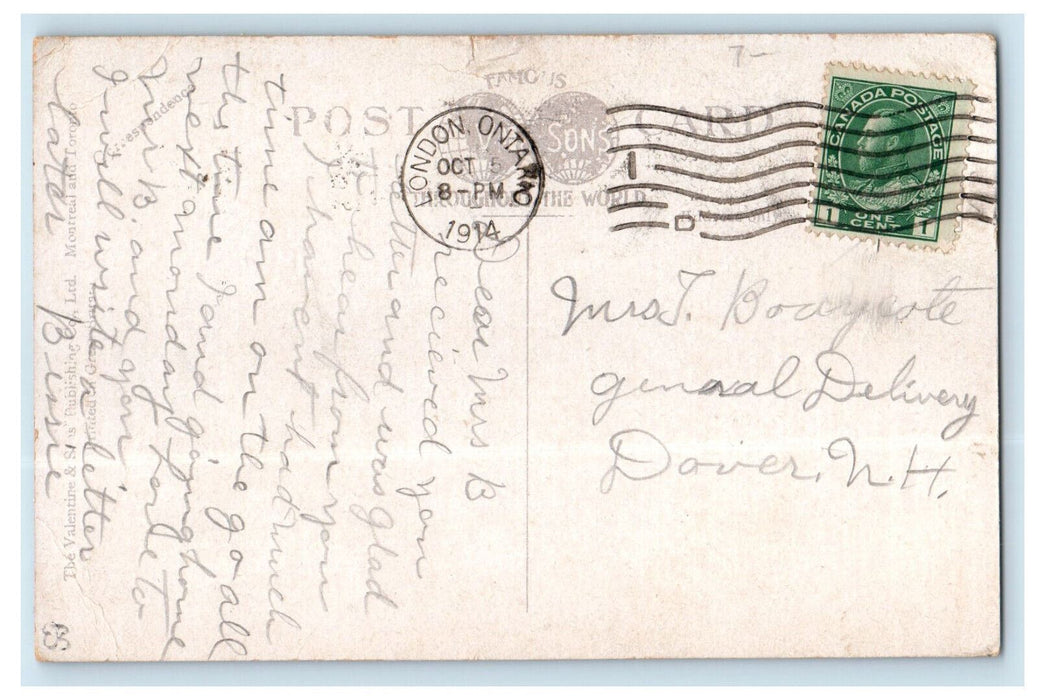 7-
FAMOUS
POST CARD
& SONS
THROUGHOUT THE WORLD
LONDON. ONTARIO
OCT 5
8-PM
1914
1
D
CANADA POSTAGE
1 ONE CENT 1
Mrs T. Boaycote
general Delivery
Dover, N.H.
Correspondence
Dear Mrs B
I recieved you
letter and was glad
to hear from you
I havent had much
time am on the go all
this time I am going home
next monday love to
Mr B and you
I will write a letter
later Bessie
The Valentine & Sons' Publishing Co., Ltd. Montreal and Toronto
Printed in Great Britain